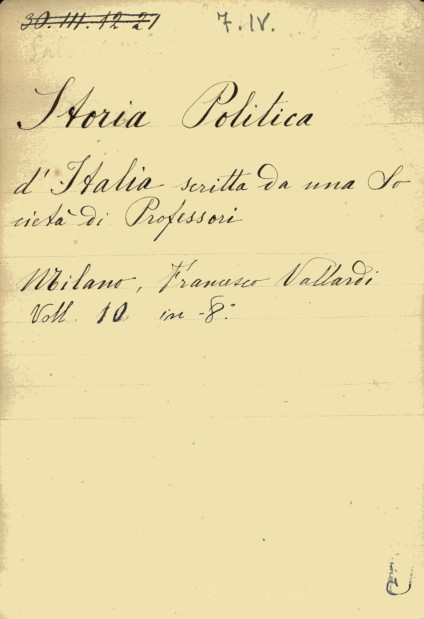 30.III.12-21 7.IV.
Storia Politica
d'Italia scritta da una So
cietà di Professori
Milano, Francesco Vallardi
Voll. 10 in -8.°